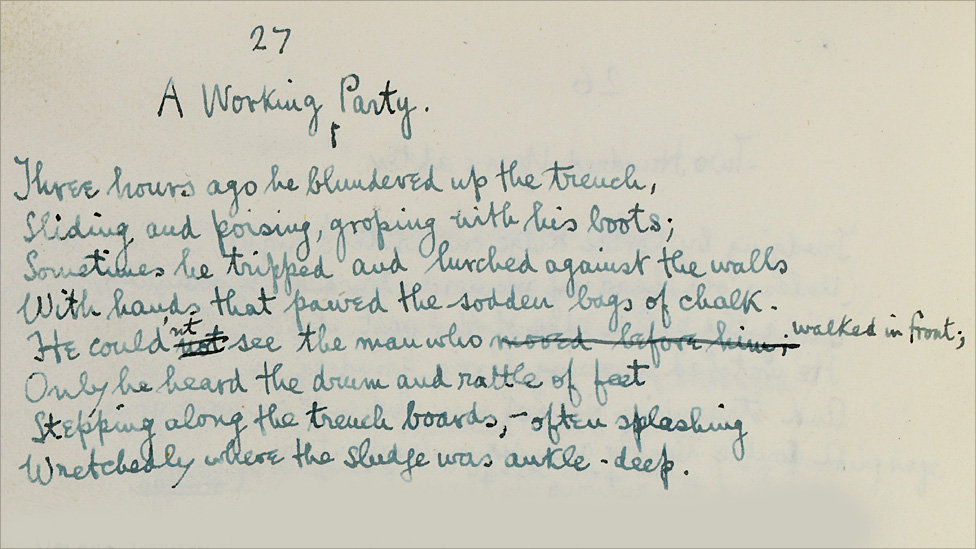 27
A Working Party.
Three hours ago he blundered up the trench,
Sliding and poising, groping with his boots;
Sometimes he tripped and lurched against the walls
With hands that pawed the sodden bags of chalk.
He couldn't not see the man who moved before him; walked in front;
Only he heard the drum and rattle of feet
Stepping along the trench boards, – often splashing
Wretchedly where the sludge was ankle-deep.